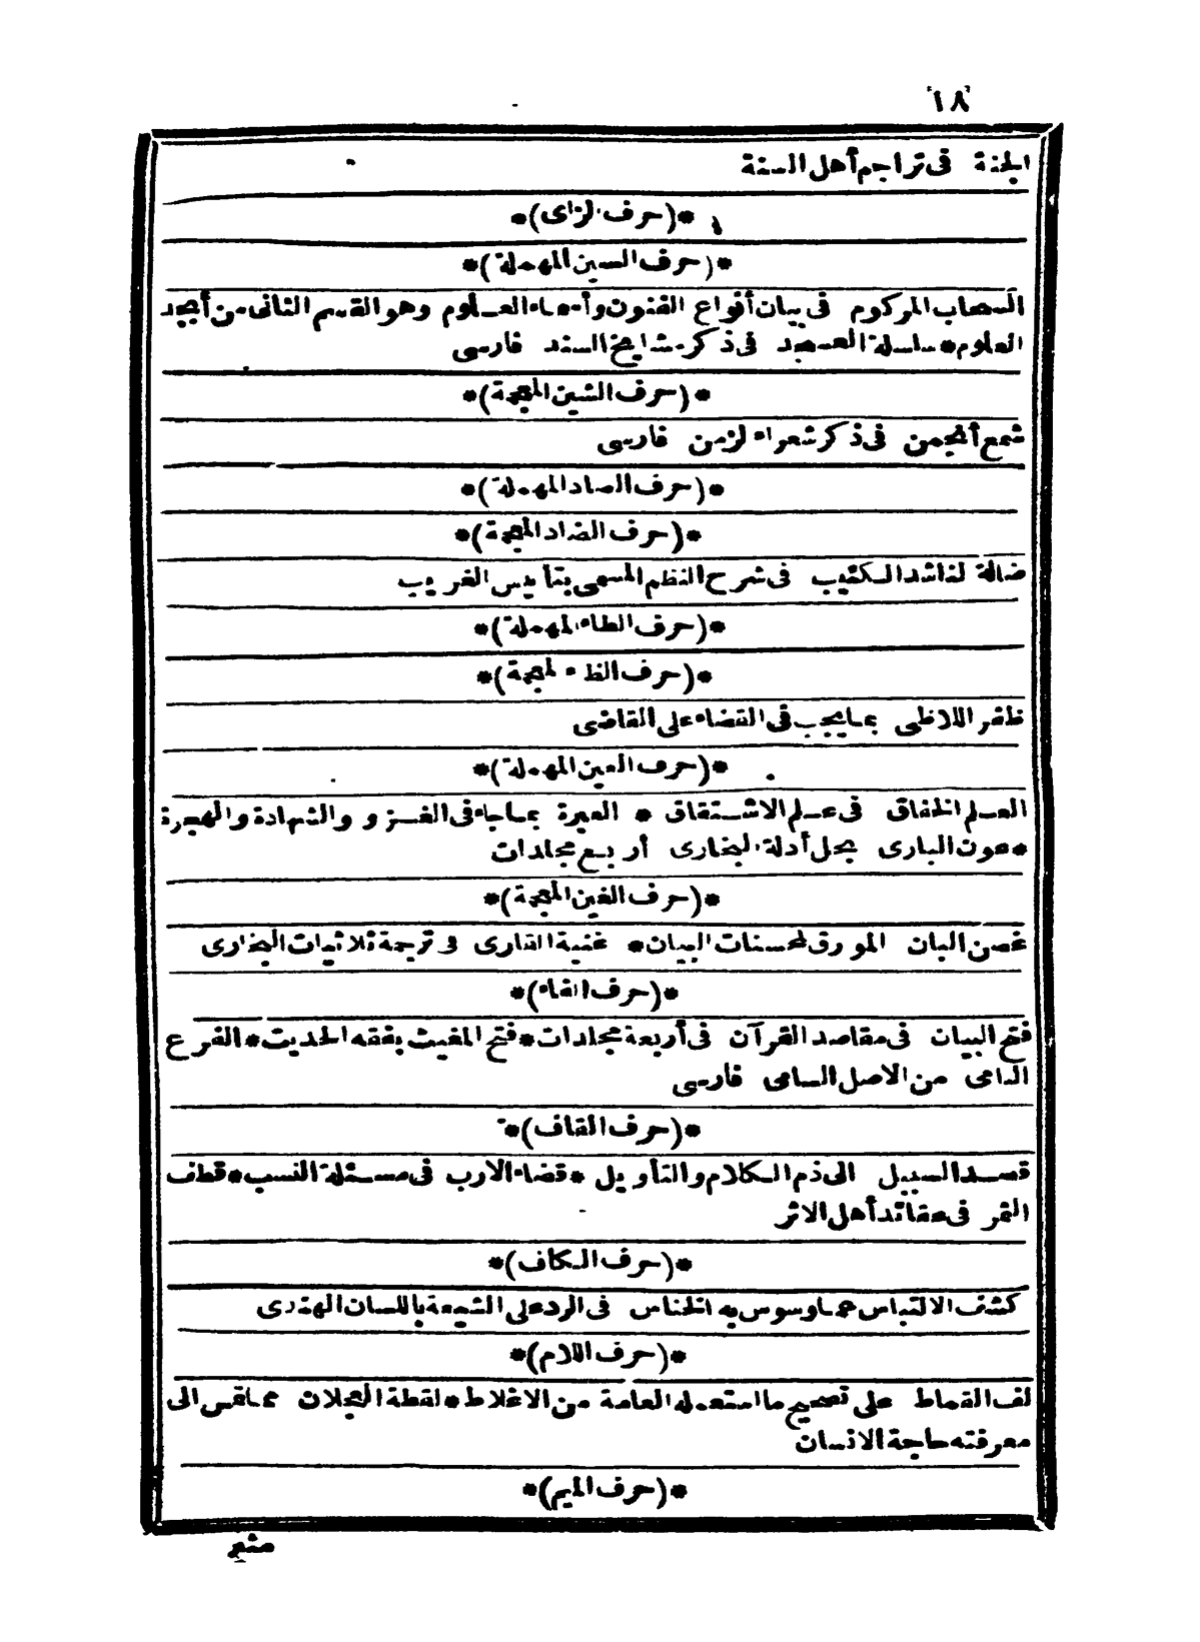 ١٨
الجنة في تراجم أهل السنة
*(حرف الزاى)*
*(حرف السين المهملة)*
السحاب المركوم في بيان أنواع الفنون وأسماء العلوم وهو القسم الثاني من أبجد
العلوم * سلسلة العسجد في ذكر مشايخ السند فارسى
*(حرف الشين المعجمة)*
شمع أنجمن في ذكر شعراء الزمن فارسى
*(حرف الصاد المهملة)*
*(حرف الضاد المعجمة)*
ضالة الناشد الكئيب في شرح النظم المسمى بتأنيس الغريب
*(حرف الطاء المهملة)*
*(حرف الظاء المعجمة)*
ظفر اللاظى بما يجب في القضاء على القاضى
*(حرف العين المهملة)*
العلم الخفاق في علم الاشتقاق * العبرة بما جاء في الغزو والشهادة والهجرة
* عون البارى بحل أدلة البخارى أربع مجلدات
*(حرف الغين المعجمة)*
غصن البان المورق لمحسنات البيان * غنية القارى في ترجمة ثلاثيات البخارى
*(حرف الفاء)*
فتح البيان في مقاصد القرآن في أربعة مجلدات * فتح المغيث بفقه الحديث * الفرع
النامى من الاصل السامى فارسى
*(حرف القاف)*
قصد السبيل الى ذم الكلام والتأويل * قضاء الارب في مسئلة النسب * قطف
الثمر في عقائد أهل الاثر
*(حرف الكاف)*
كشف الالتباس عما وسوس به الخناس في الرد على الشيعة باللسان الهندى
*(حرف اللام)*
لف القماط على تصحيح ما استعمله العامة من الاغلاط * لقطة العجلان مما تمس الى
معرفته حاجة الانسان
*(حرف الميم)*